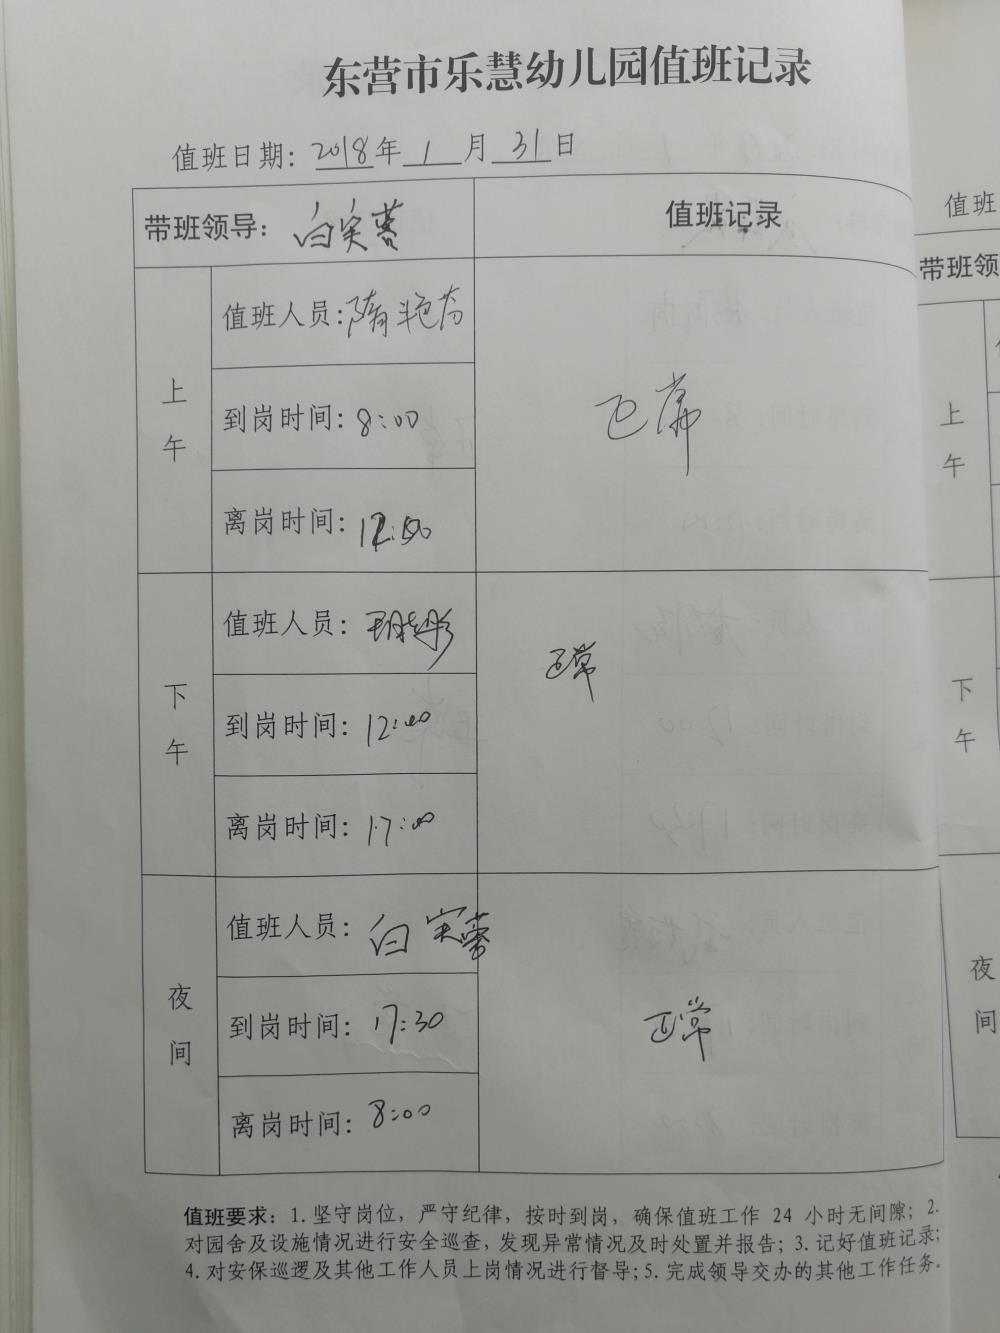 东营市乐慧幼儿园值班记录
值班日期：2018年1月31日
带班领导：白实蓉
值班记录
上午
值班人员：隋艳芳
到岗时间：8:00
离岗时间：
正常
下午
值班人员：
到岗时间：12:00
离岗时间：17:00
正常
夜间
值班人员：白实蓉
到岗时间：17:30
离岗时间：8:00
正常
值班要求：1. 坚守岗位，严守纪律，按时到岗，确保值班工作 24 小时无间隙；2.
对园舍及设施情况进行安全巡查，发现异常情况及时处置并报告；3. 记好值班记录；
4. 对安保巡逻及其他工作人员上岗情况进行督导；5. 完成领导交办的其他工作任务。
值班
带班领
上午
下午
夜间